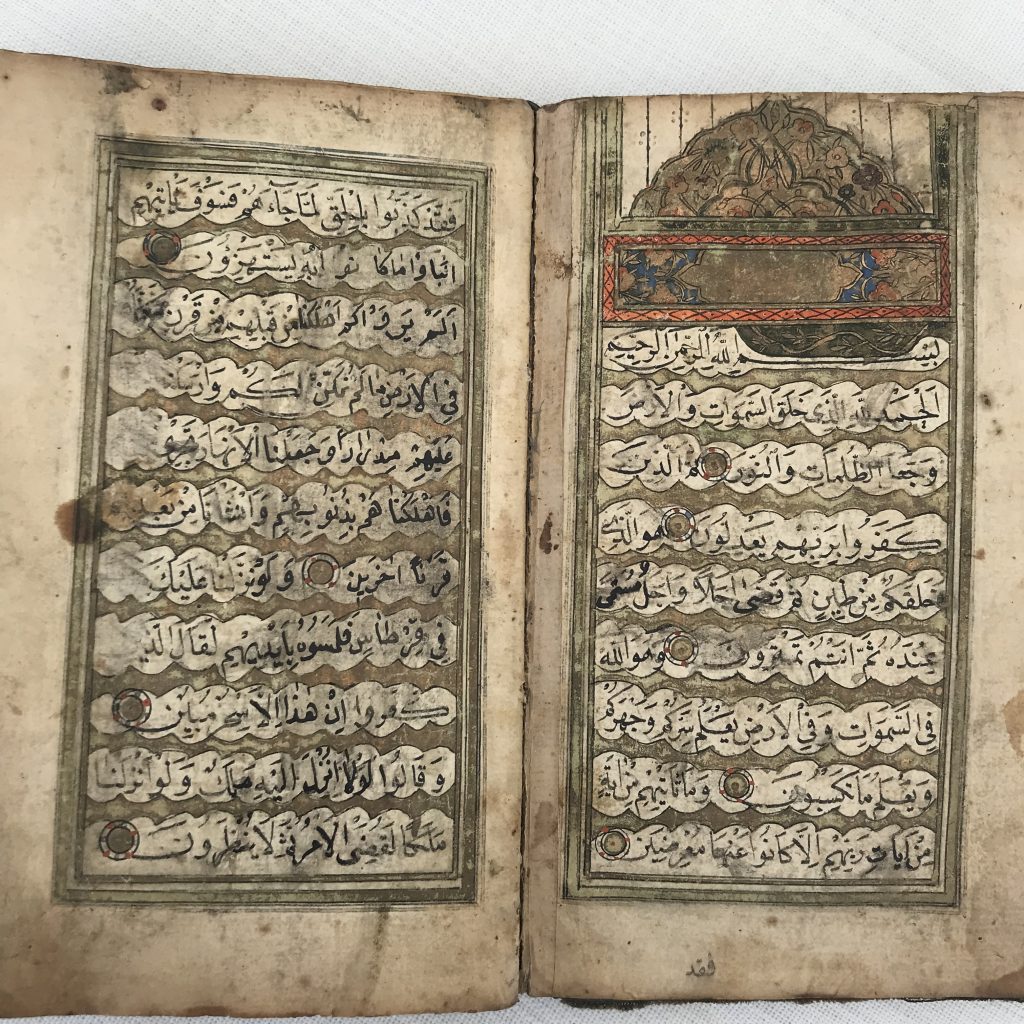 بسم الله الرحمن الرحيم
الحمد لله الذي خلق السموات والارض
وجعل الظلمات والنور ثم الذين
كفروا بربهم يعدلون هو الذي
خلقكم من طين ثم قضى اجلا واجل مسمى
عنده ثم انتم تمترون وهو الله
في السموات وفي الارض يعلم سركم وجهركم
ويعلم ما تكسبون وما تاتيهم من اية
من ايات ربهم الا كانوا عنها معرضين
فقد
فقد كذبوا بالحق لما جاءهم فسوف ياتيهم
انباؤا ما كانوا به يستهزؤن
الم يروا كم اهلكنا من قبلهم من قرن مكناهم
في الارض ما لم نمكن لكم وارسلنا
عليهم مدرارا وجعلنا الانهار تجري
فاهلكناهم بذنوبهم وانشأنا من بعدهم
قرنا اخرين ولو نزلنا عليك
في قرطاس فلمسوه بايديهم لقال الذين
كفروا ان هذا الا سحر مبين
وقالوا لولا انزل اليه ملك ولو انزلنا
ملكا لقضي الامر ثم لا ينظرون